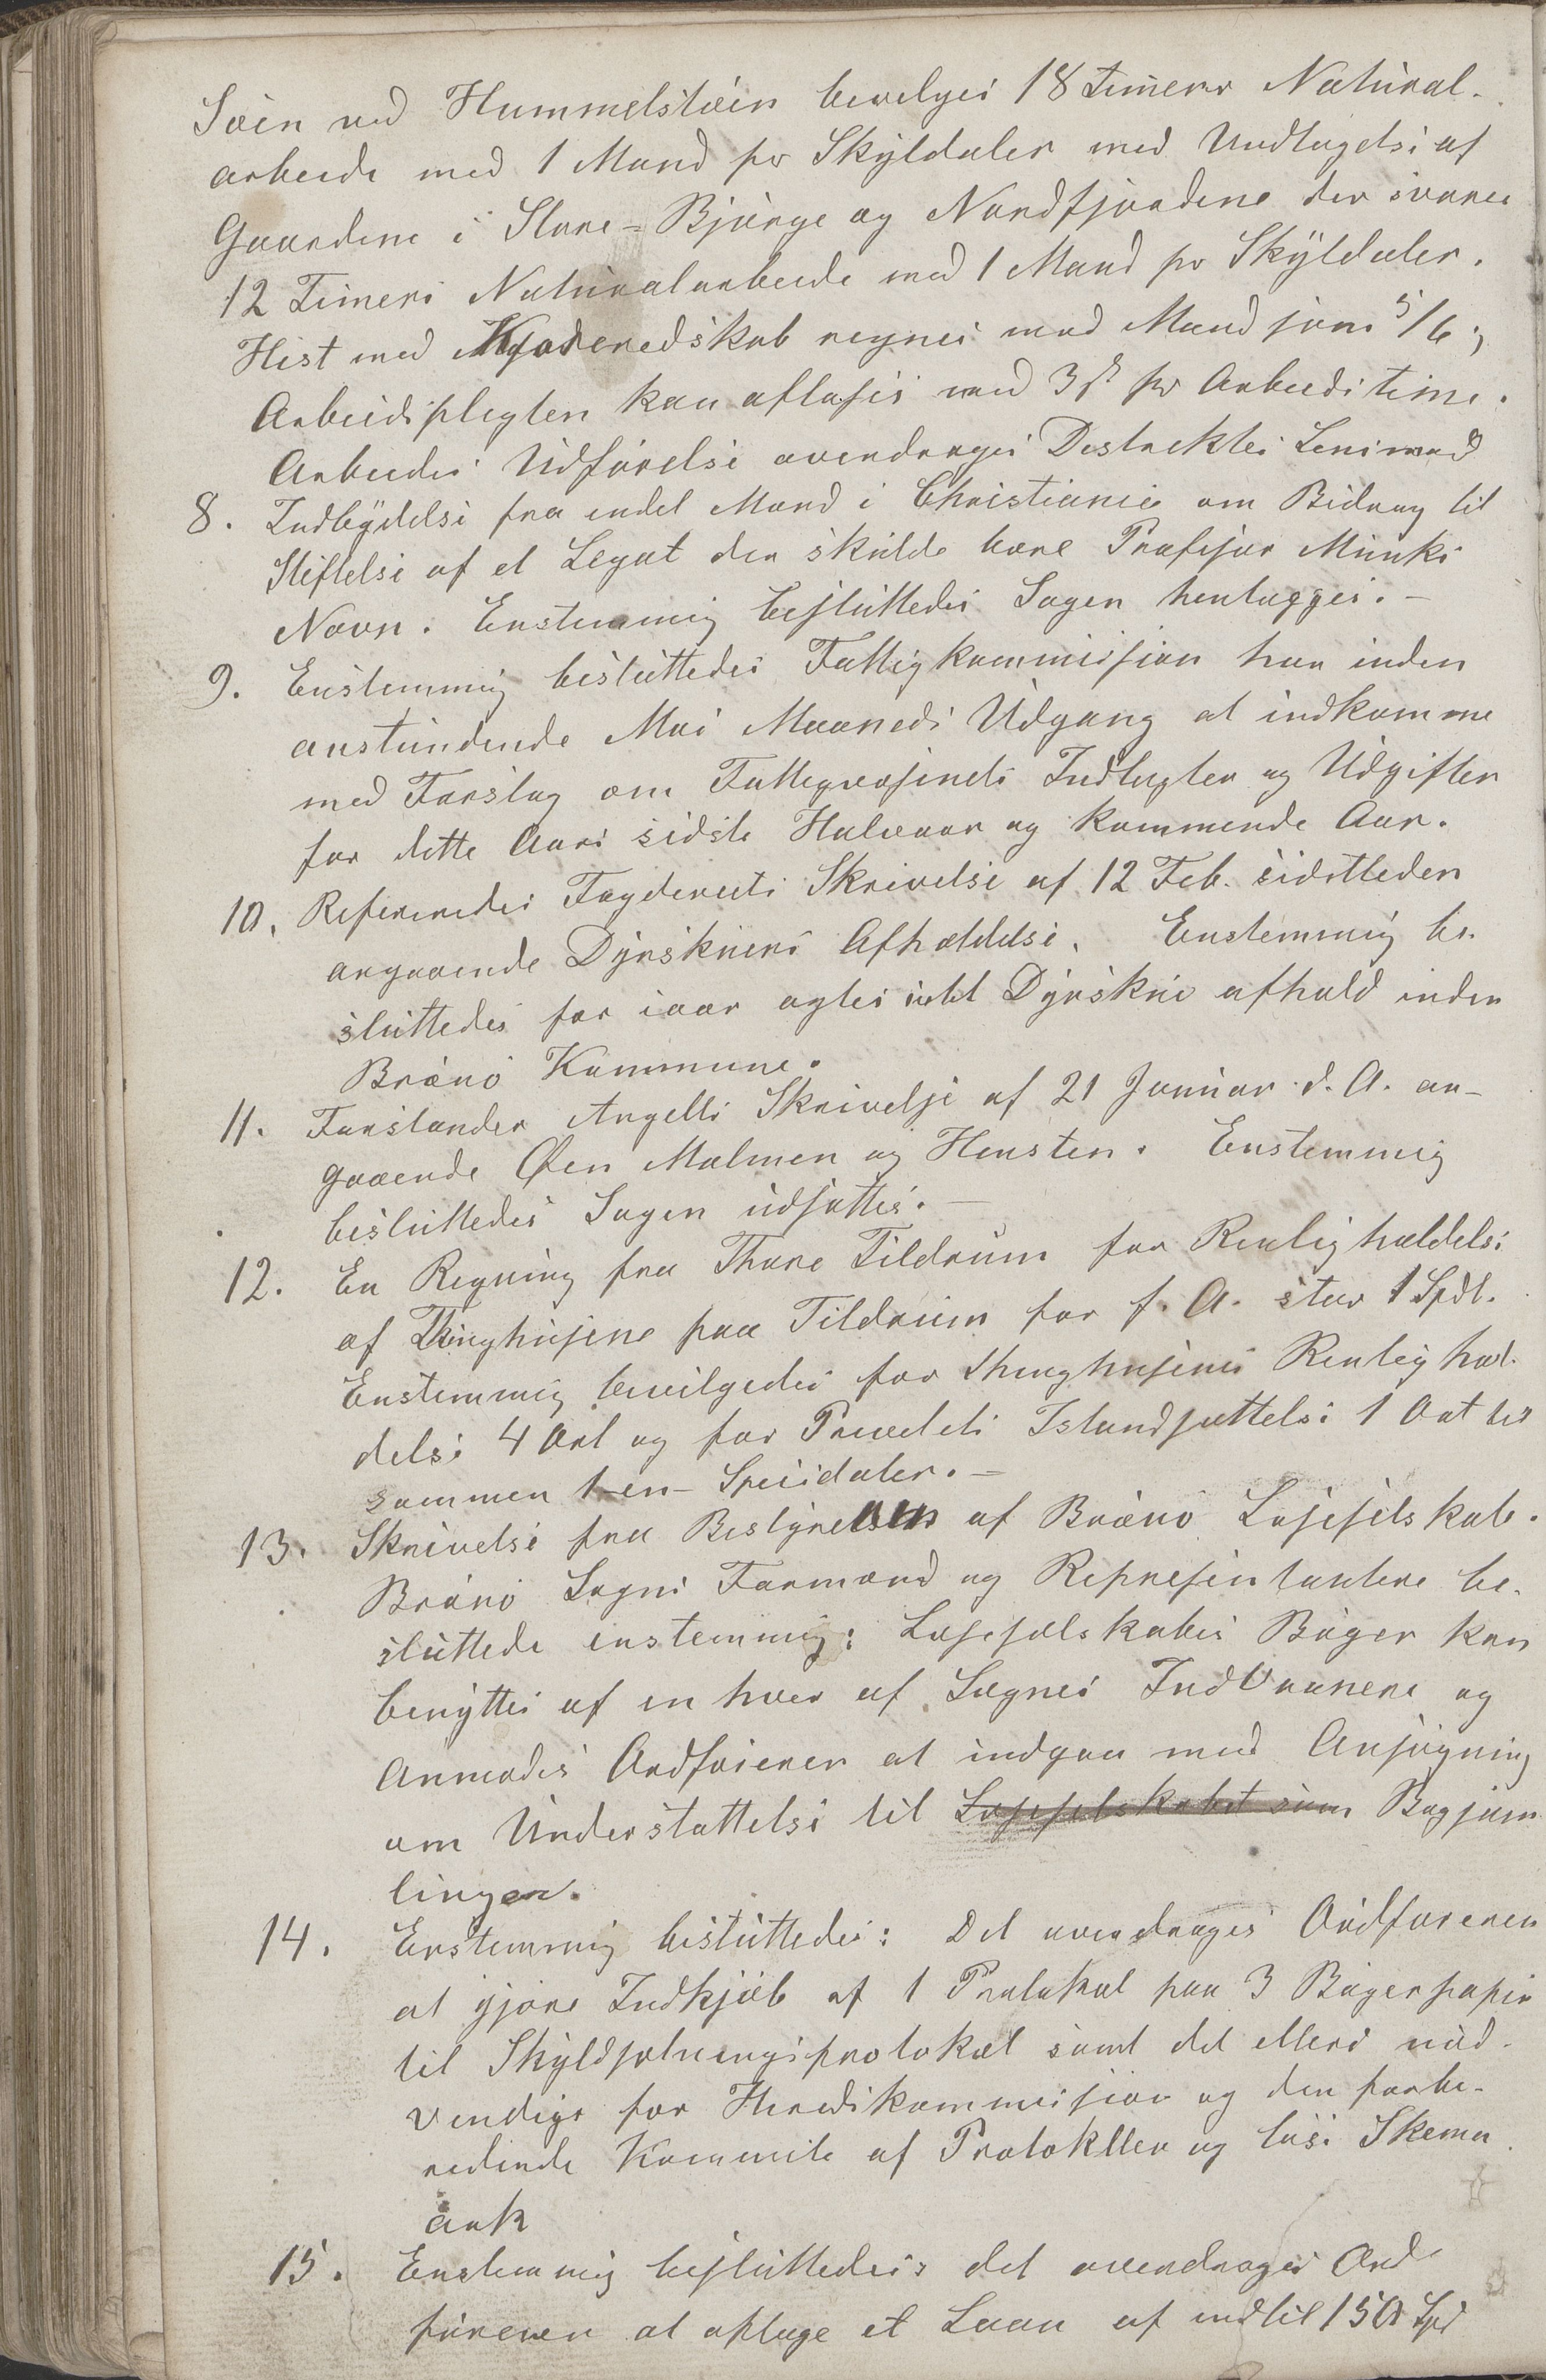 Søen ved Hummelstøen bevilges 18 Timers Natural-
arbeide med 1 Mand pr Skyldaler med Undtagelse af
Gaardene i Store-Bjørge og Nordfjordene der svarer
12 Timers Naturalarbeide med 1 Mand pr Skyldaler.
Hest med Kjøreredskab regnes mod Mand som 5/6;
Arbeidspligten kan afløses med 3 s pr Arbeidstime.
Arbeides Udførelse overdrages Destriktes Lensmand
8. Indbydelse fra endel Mænd i Christiania om Bidrag til
Stiftelse af et Legat der skulde bære Profesjor Munks
Navn. Enstemmig besluttedes Sagen henlægges. –
9. Enstemmig besluttedes Fattigkommisjion har inden
anstundende Mai Maaneds Udgang at indkomme
med Forslag om Fattigvæsenets Indtægter og Udgifter
for dette Aars sidste Halvaar og kommende Aar.
10. Refereredes Fogderiets Skrivelse af 12 Feb. sidstleden
angaaende Dyrskuers Afholdelse. Enstemmig be-
sluttedes for iaar agtes intet Dyrskue afhold inden
Brønø Kommune.
11. Forstander Angells Skrivelse af 21 Januar d. A. an-
gaaende Øen Malmen og Hensten. Enstemmig
besluttedes Sagen udsættes. –
12. En Regning fra Thore Tildrum for Renligholdelse
af Thinghusene paa Tildrum for f. A. stor 1 Spdl.
Enstemmig bevilgedes for Thinghusenes Renlighol-
delse 4 Ort og for Privetets Istandsættelse 1 Ort til
sammen 1-en- Speisidaler. –
13. Skrivelse fra Bestyrelsen af Brønø Læseselskab.
Brønø Sogns Formænd og Represientantere be-
sluttede enstemmig: Læseselskabes Bøger kan
benyttes af en hver af Sognes Indvaanere og
Anmodes Ordføreren at indgaa med Ansøgning
om Understøttelse til Læseselskabet som Bogsam
lingen.
14. Enstemmig besluttedes: Det overdrages Ordføreren
at gjøre Indkjøb af 1 Protokol paa 3 Bøgerpapir
til Skyldsætningsprotokol samt det ellers nød-
vendige for Heredskommisjion og den forbe-
redende Kommite af Protokller og løse Skema
ark
15. Enstemmig besluttedes det overdrages Ord
føreren at optage et Laan af indtil 150 Spd